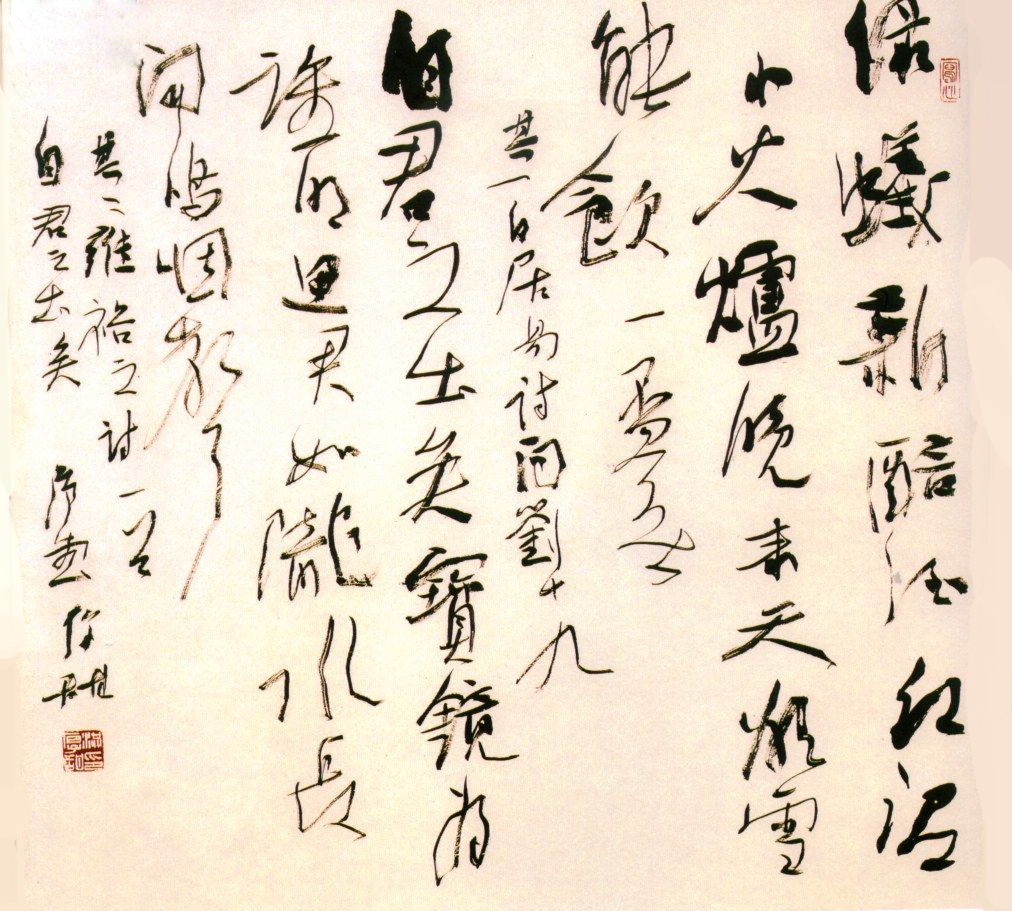 綠蟻新醅酒紅泥
小火爐晚来天欲雪
能飲一盃无
其一白居易詩问劉十九
自君之出矣寶鏡为
誰明思君如隴水長
闻嗚咽聲
其二雍裕之詩一首
自君之出矣